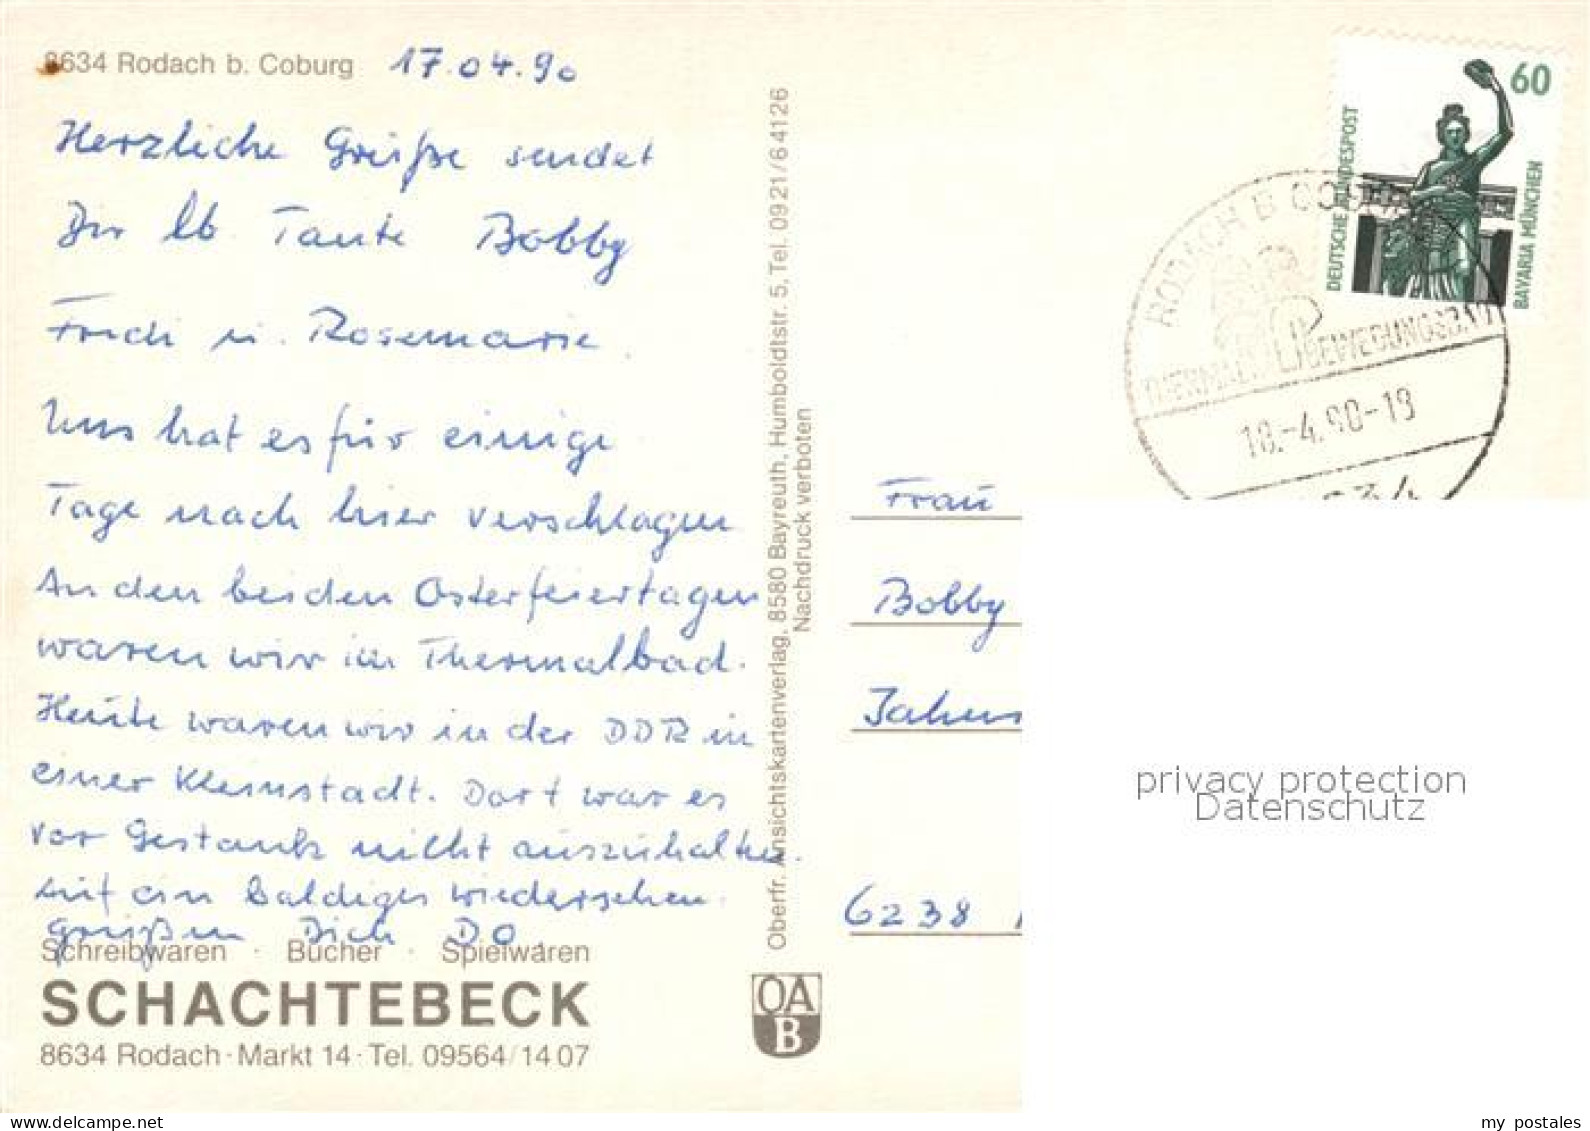 8634 Rodach b. Coburg 17.04.90
Herzliche Grüße sendet
Dir lb. Tante Bobby
Friedi u. Rosemarie.
Uns hat es für einige
Tage nach hier verschlagen
An den beiden Osterfeiertagen
waren wir im Thermalbad.
Heute waren wir in der DDR in
einer Kleinstadt. Dort war es
vor Gestank nicht auszuhalten.
Auf ein baldiges wiedersehen.
grüßen Dich D.O.
Schreibwaren · Bücher · Spielwaren
SCHACHTEBECK
8634 Rodach · Markt 14 · Tel. 09564/1407
Oberfr. Ansichtskartenverlag, 8580 Bayreuth, Humboldtstr. 5, Tel. 0921/64126
Nachdruck verboten
OA
B
60
DEUTSCHE BUNDESPOST
BAVARIA MÜNCHEN
RODACH B COBURG
THERMAL BEWEGUNGSBAD
18.-4.90-19
Frau
Bobby
6238
privacy protection
Datenschutz
my postales